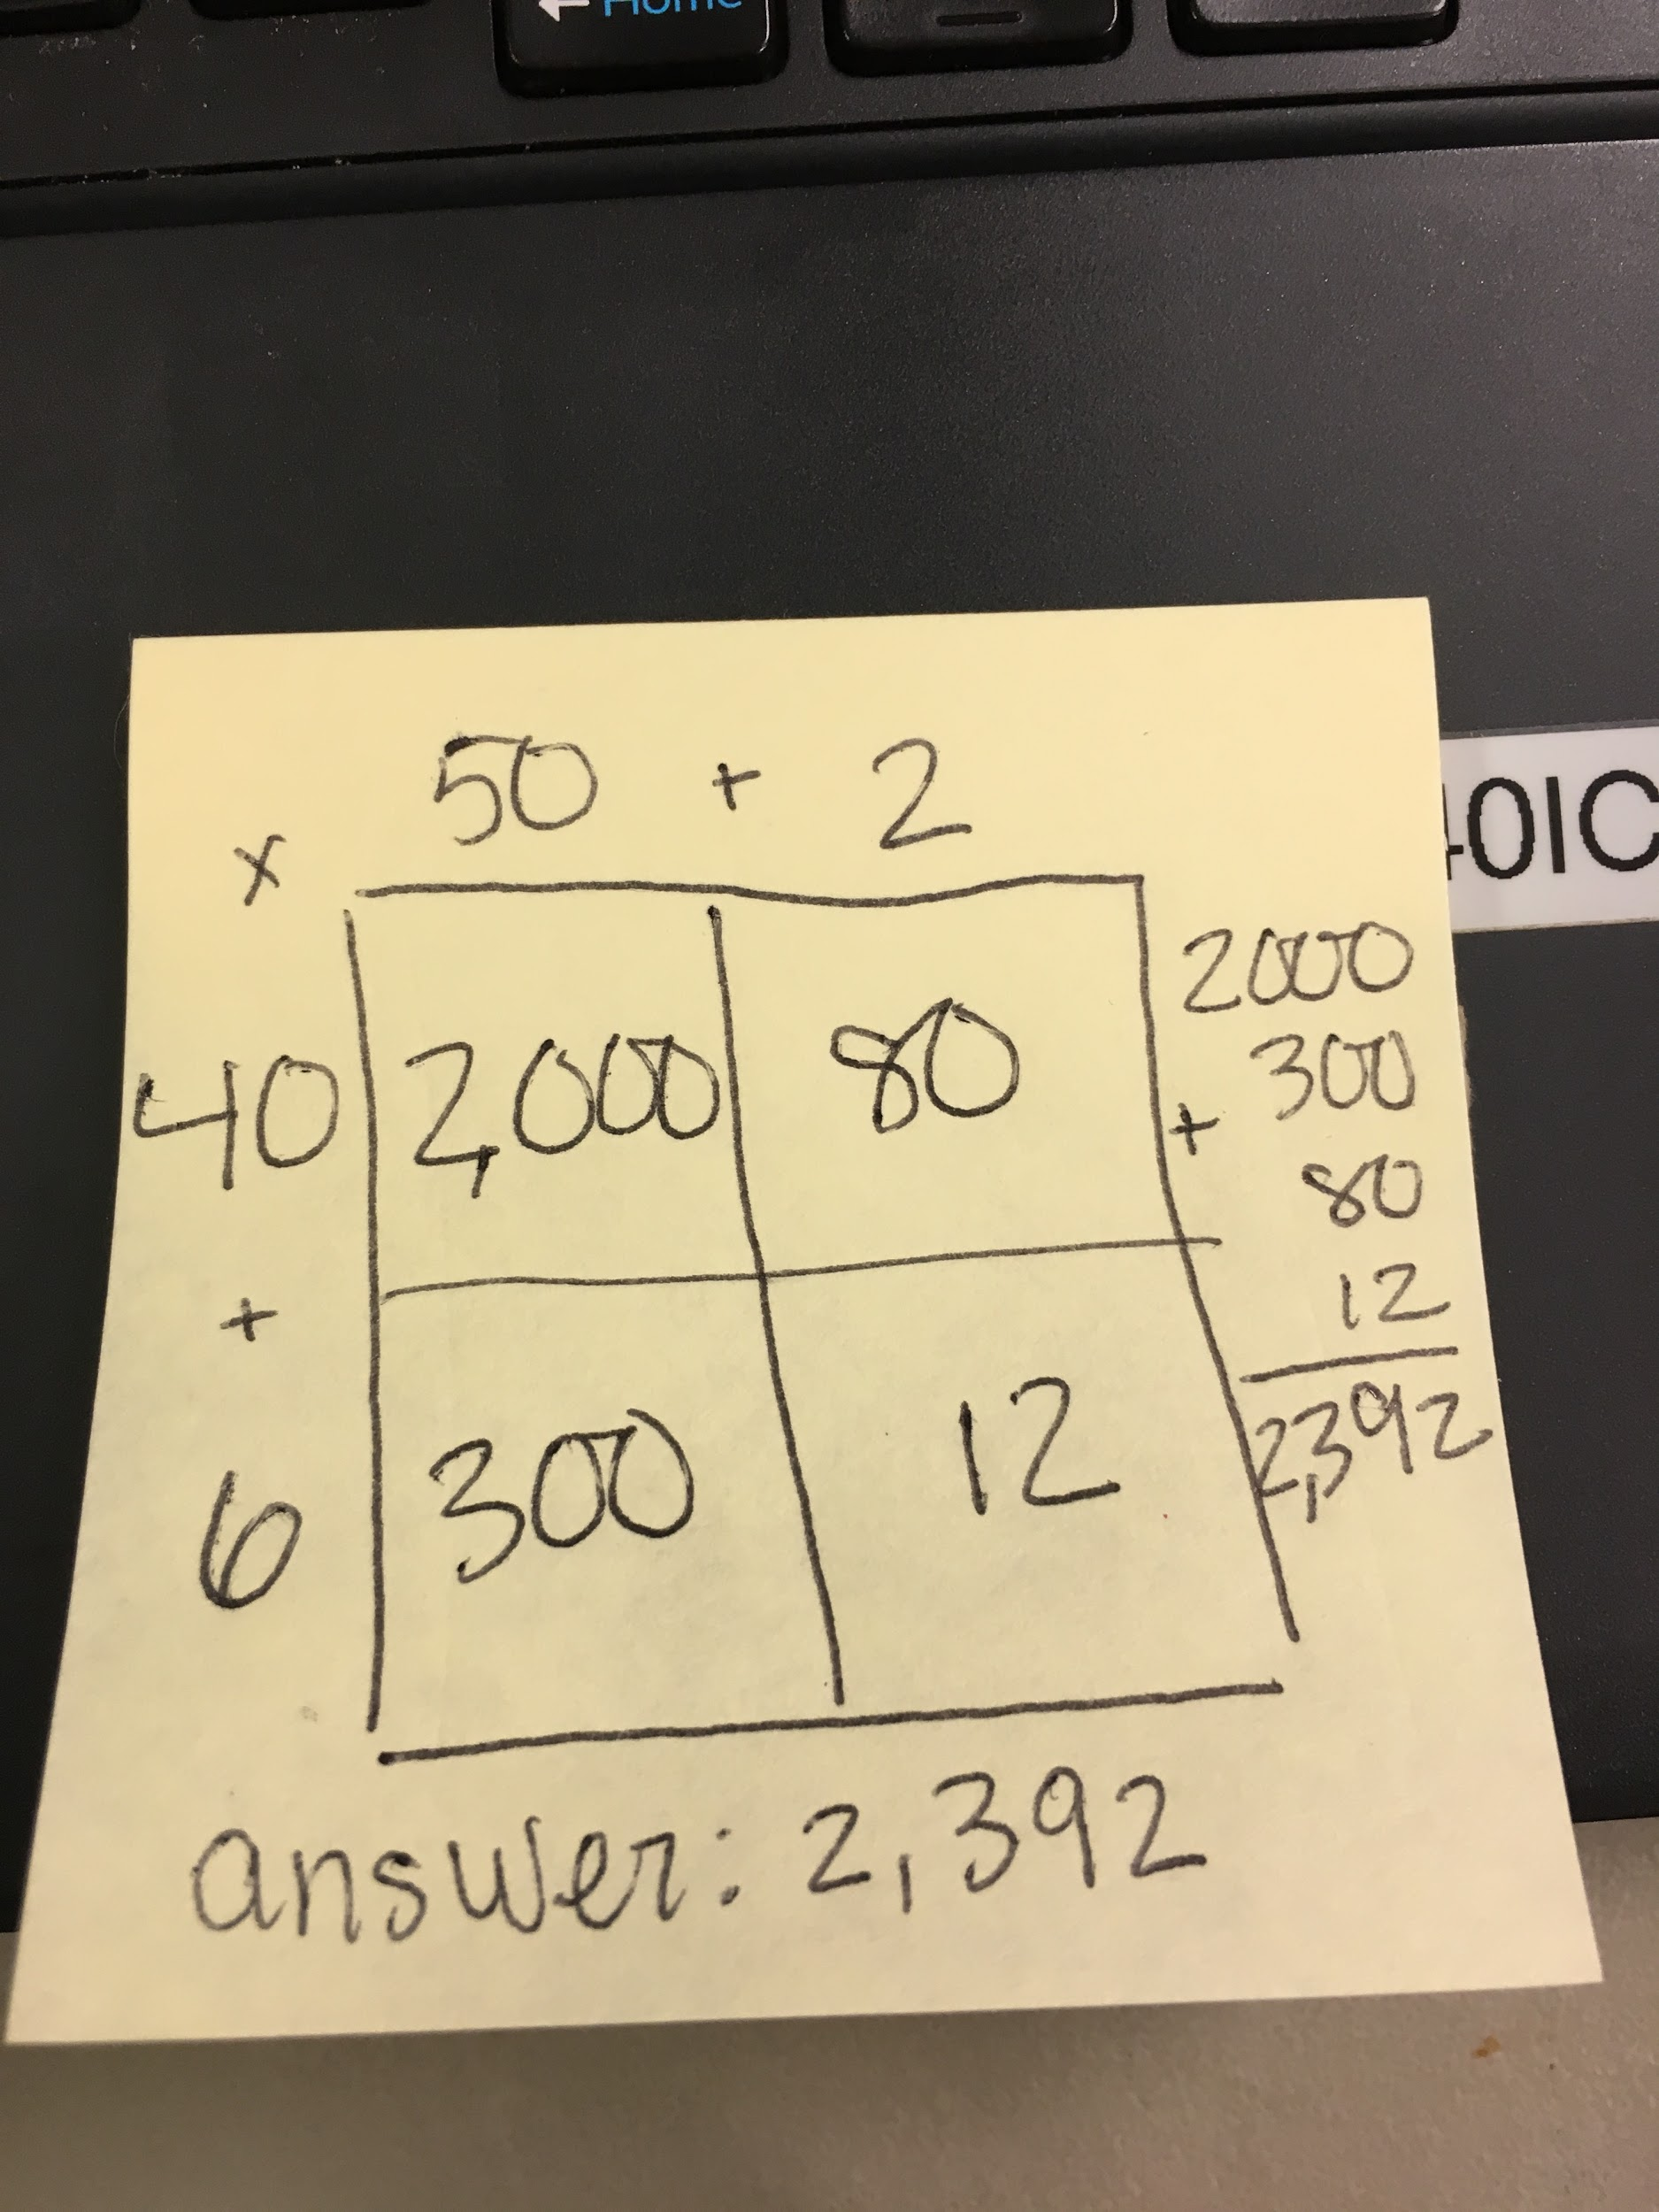 ← Home
50 + 2
x
40 2,000 80
+
6 300 12
2000
300
+
80
12
2,392
answer: 2,392
0IC